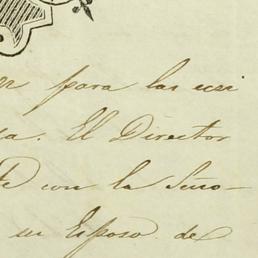 er para las usi
sa. El Director
te con la Seño-
su Esposo de